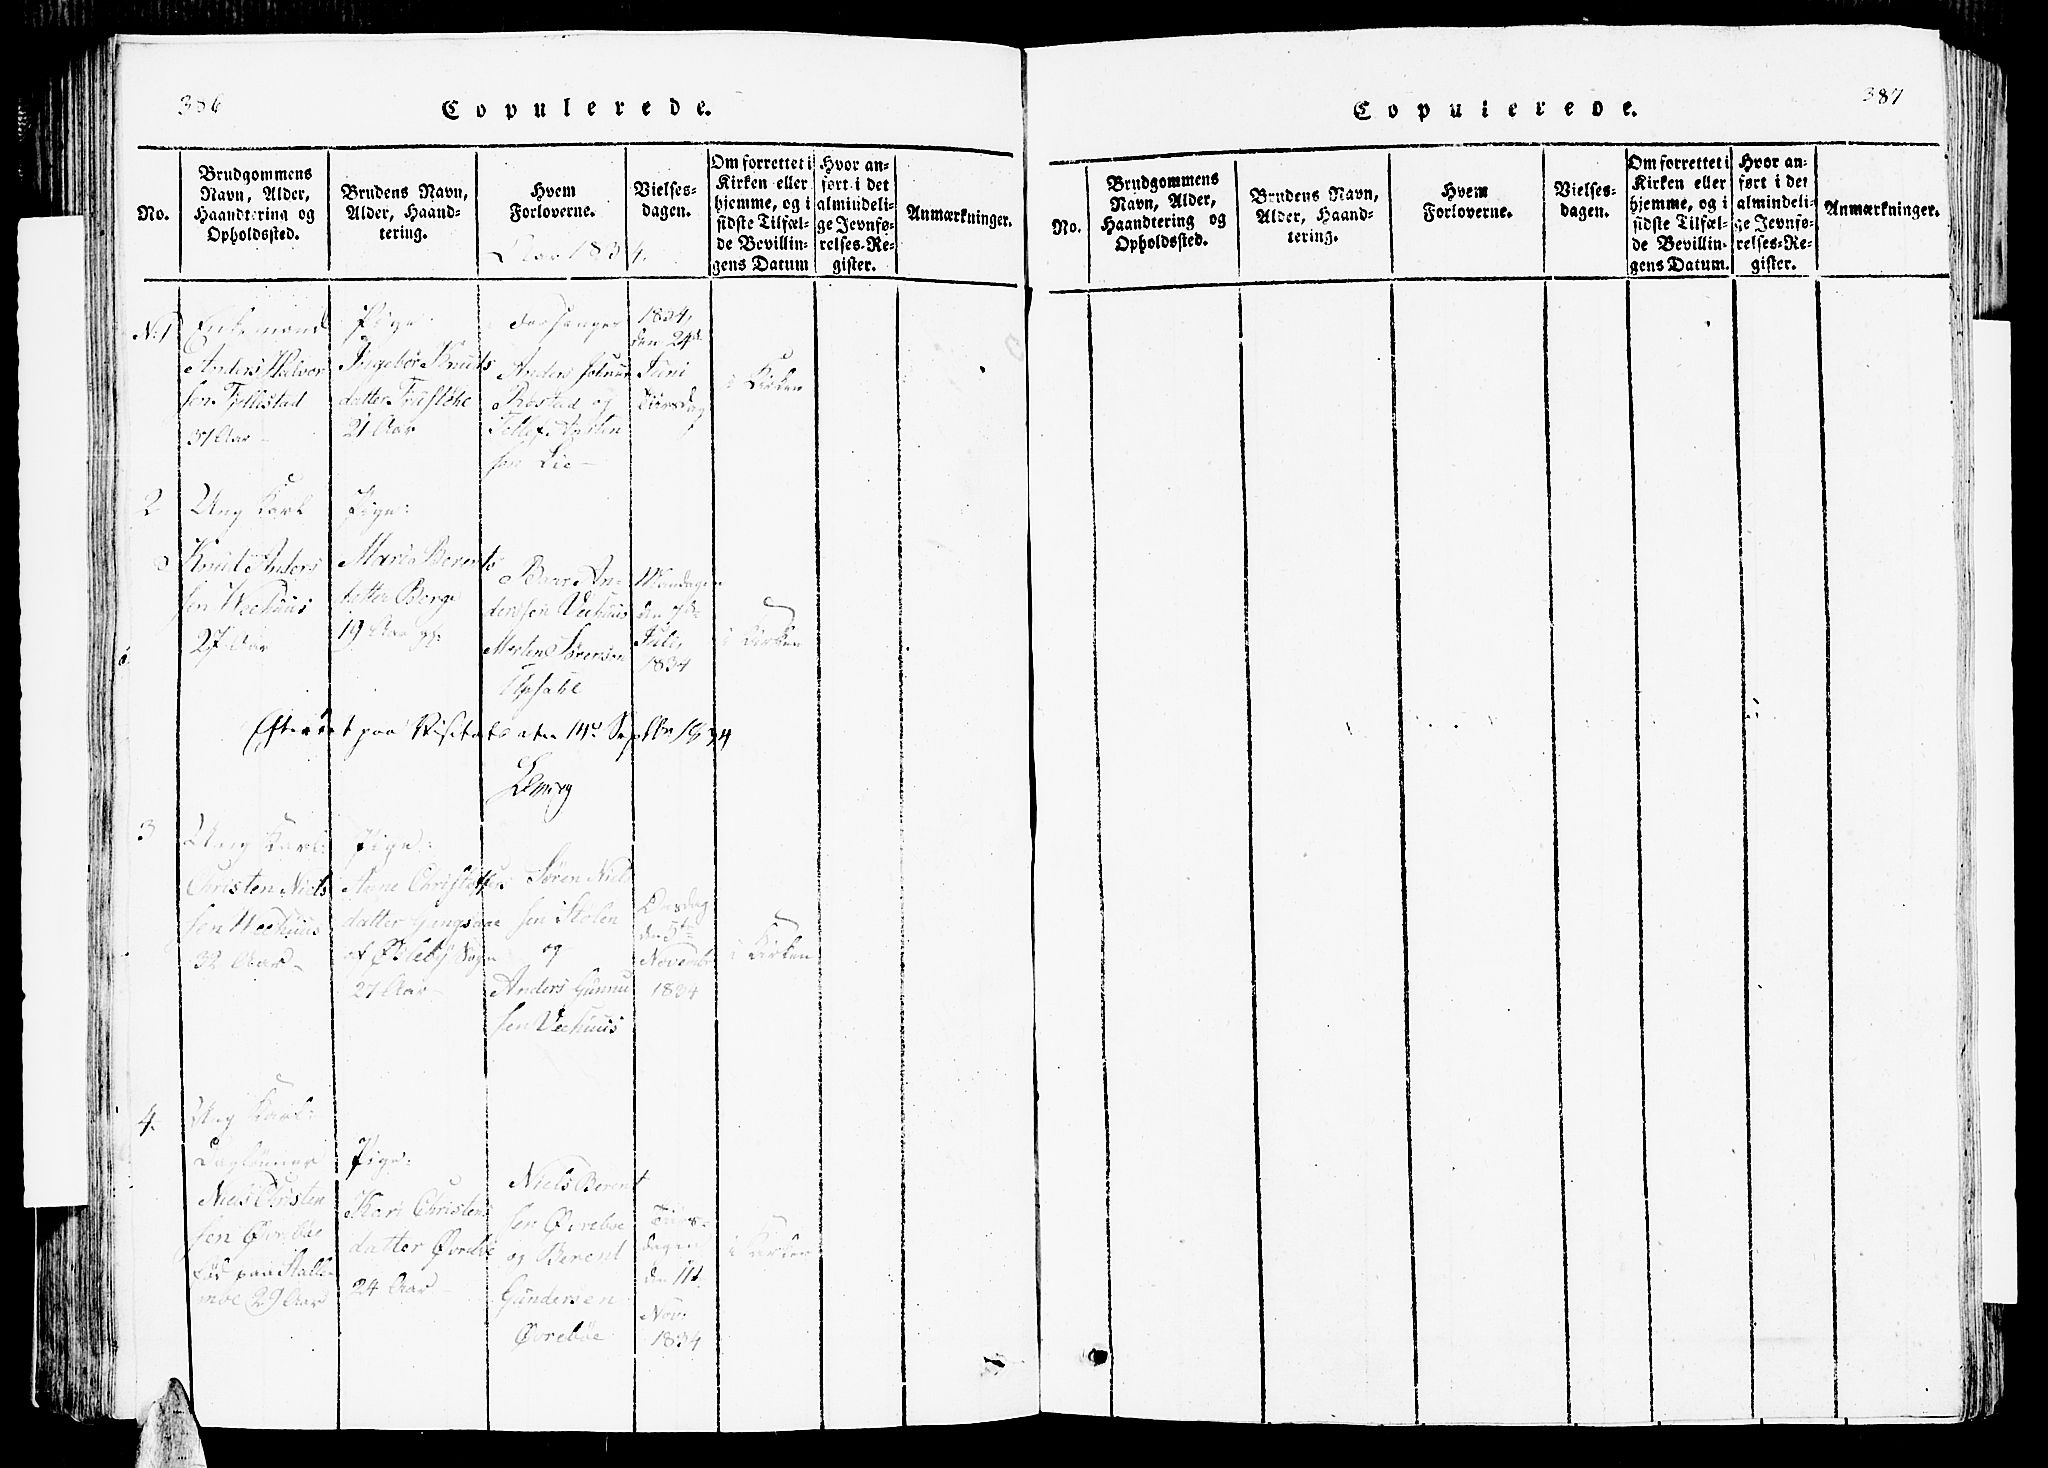 386
Copulerede.
No.
Brudgommens
Navn, Alder,
Haandtering og
Opholdssted.
Brudens Navn,
Alder, Haand-
tering.
Hvem
Forloverne.
Vielses-
dagen.
Om forrettet i
Kirken eller
hjemme, og i
sidste Tilfæl-
de Bevillin-
gens Datum
Hvor an-
ført i det
almindeli-
ge Jevnfø-
relses-Re-
gister.
Anmærkninger.
Aar 1834.
N. 1
Enkemand
Anders Halvor
sen Fjellestad
37 Aar
Pige
Ingebor Knuds
datter
21 Aar
Anders
og
sen Lie
1834,
den 24de
Juni
Tirsdag
i Kirken
2
Ung Karl
Knud Anders
sen Weehuus
27 Aar
Pige:
Maria Berents
datter Berge
19 Aar
An-
dersen Veehuus
Morten Sørensen
Upsahl
Mandagen
den 7de
Juli,
1834
i Kirken
Efterseet paa Visitats den 14de Septbr 1834
3
Ung Karl:
Christen Niels
sen Weehuus
32 Aar
Pige:
Anne Christophers
datter
af Øslebÿ Sogn
27 Aar
Søren Niels
sen Stølen
og
Anders Gunnu
sen Veehuus
Onsdag
den 5te
Novembr
1834
i Kirken
4.
Ung Karl:
Daglønner
Niels Christen
sen Øvrebøe
paa
29 Aar
Pige:
Kari Christens
datter Øvrebøe
24 Aar
Niels Berent
sen Øvrebøe
og Berent
Gundersen
Øvrebøe
Tirs-
dagen
den 11te
Nov:
1834
i Kirken
387
Copulerede.
No.
Brudgommens
Navn, Alder,
Haandtering og
Opholdssted.
Brudens Navn,
Alder, Haand-
tering.
Hvem
Forloverne.
Vielses-
dagen.
Om forrettet i
Kirken eller
hjemme, og i
sidste Tilfæl-
de Bevillin-
gens Datum.
Hvor an-
ført i det
almindeli-
ge Jevnfø-
relses-Re-
gister.
Anmærkninger.